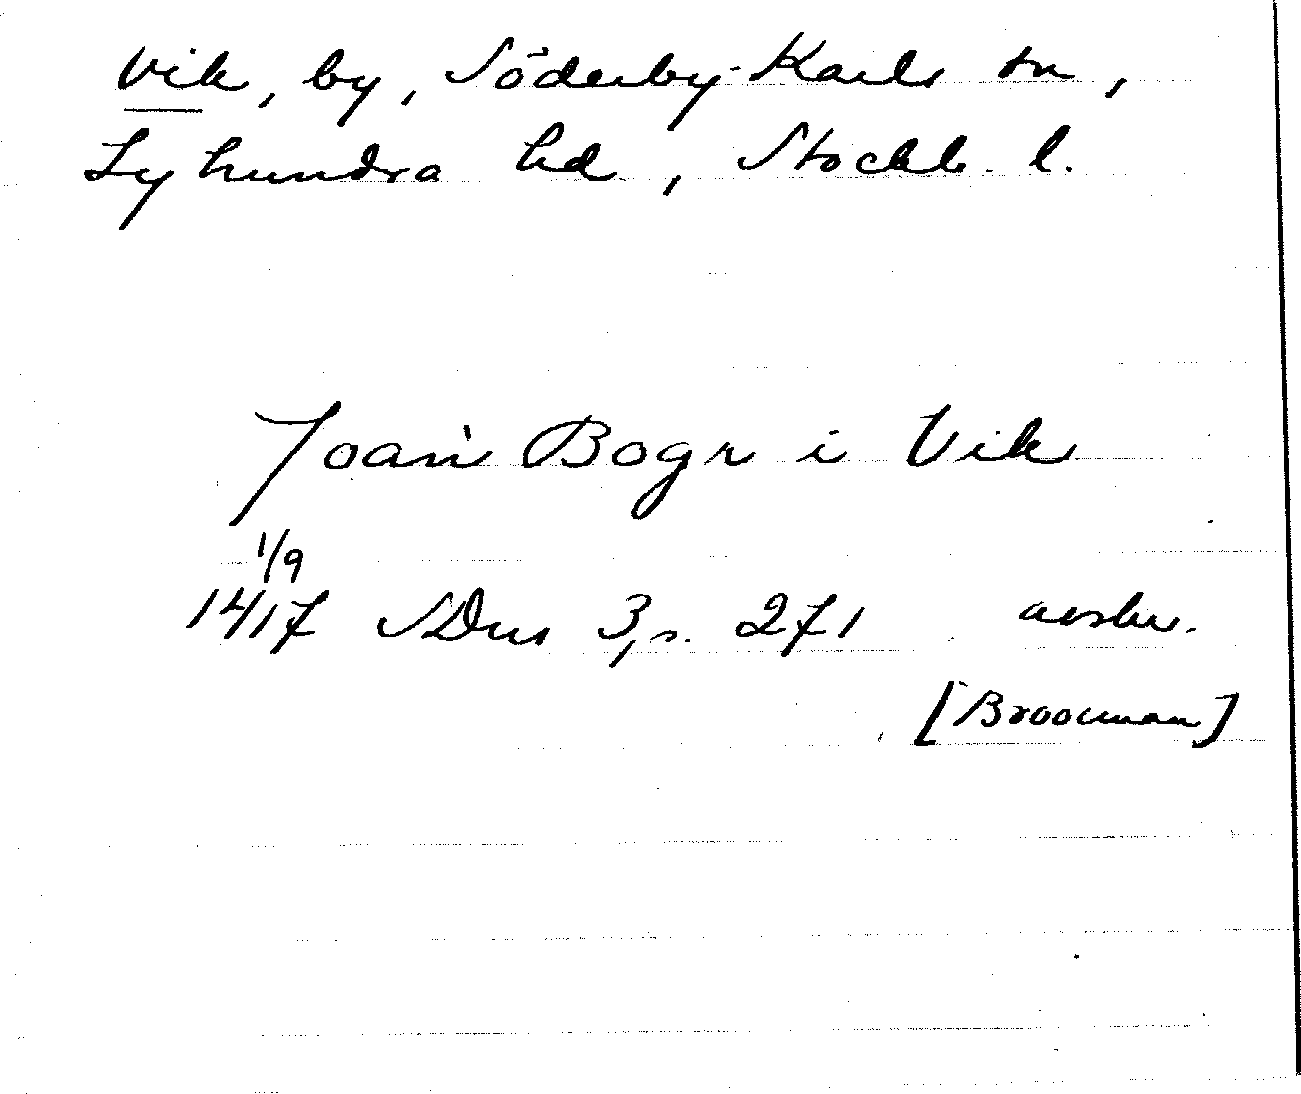 Vik, by, Söderby-Karls sn,
Lyhundra hd, Stockh. l.
Joan Bogr i Vik
1/9
1417 SDns 3, s. 271 avskr.
[Brooman]